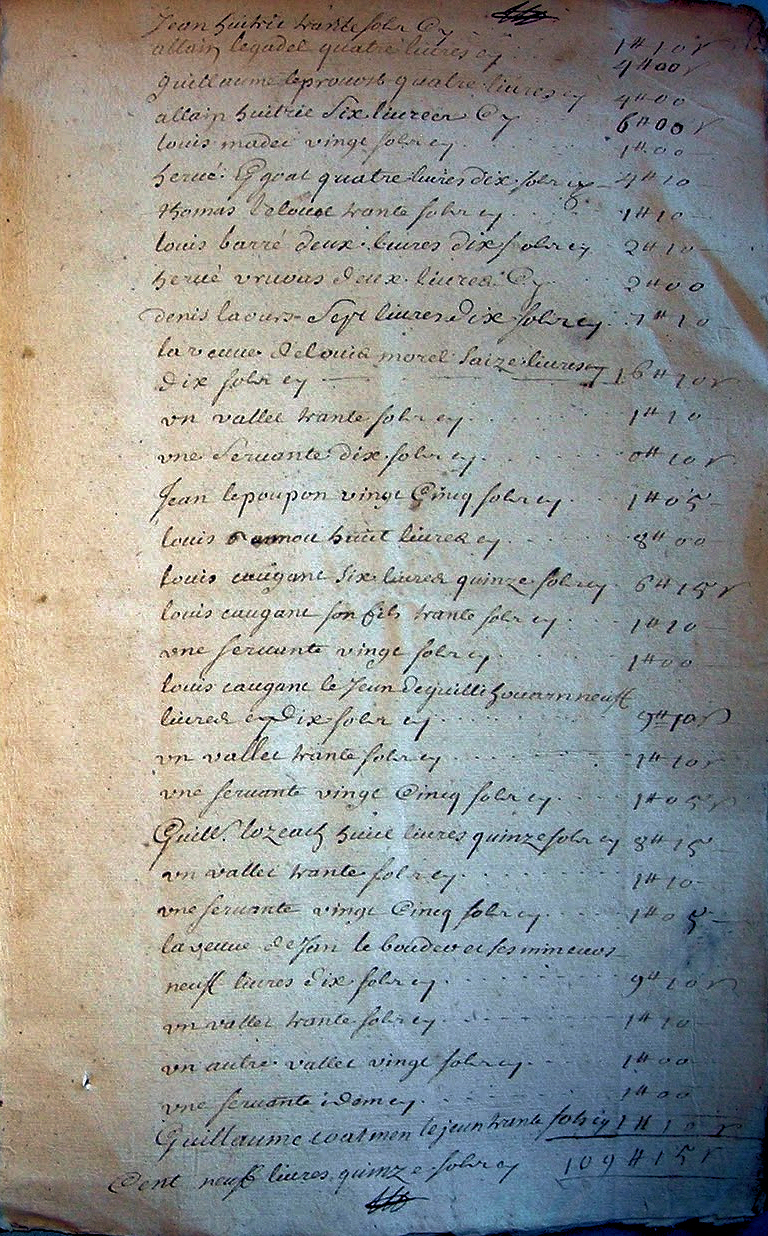 Jean huitric trante sols Cy 1# 10 s
allain legadel quatre livres cy 4# 00 s
guillaume leprovost quatre livres cy 4# 00
allain huitric six livres Cy 6# 00 s
louis madec vingt sols cy 1# 00
hervé quatre livres dix sols cy 4# 10
thomas trante sols cy 1# 10
louis barré deux livres dix sols cy 2# 10
hervé deux livres Cy 2# 00
denis laours sept livres dix sols cy 7# 10
la veuve de louis morel saize livres
dix sols cy 16# 10 s
vn vallet trante sols cy 1# 10
vne servante dix sols cy 0# 10 s
Jean lepoupon vingt Cinq sols cy 1# 05
louis huit livres cy 8# 00
louis caugant six livres quinze sols cy 6# 15 s
louis caugant son fils trante sols cy 1# 10
vne servante vingt sols cy 1# 00
louis caugant le Jeun de neuff
livres dix sols cy 9# 10 s
vn vallet trante sols cy 1# 10 s
vne servante vingt Cinq sols cy 1# 05 s
Guill. lozeach huit livres quinze sols cy 8# 15
vn vallet trante sols cy 1# 10
vne servante vingt Cinq sols cy 1# 05
la veuve de Jan le boudec et ses mineurs
neuff livres dix sols cy 9# 10 s
vn vallet trante sols cy 1# 10
vn autre vallet vingt sols cy 1# 00
vne servante idem cy 1# 00
Guillaume coatmen le jeun trante sols cy 1# 10 s
Cent neuff livres quinze sols cy 109# 15 s